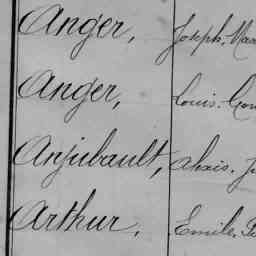 Anger, Joseph. Mar
Anger, Louis.
Anjubault, Alexis. J
Arthur, Emile.